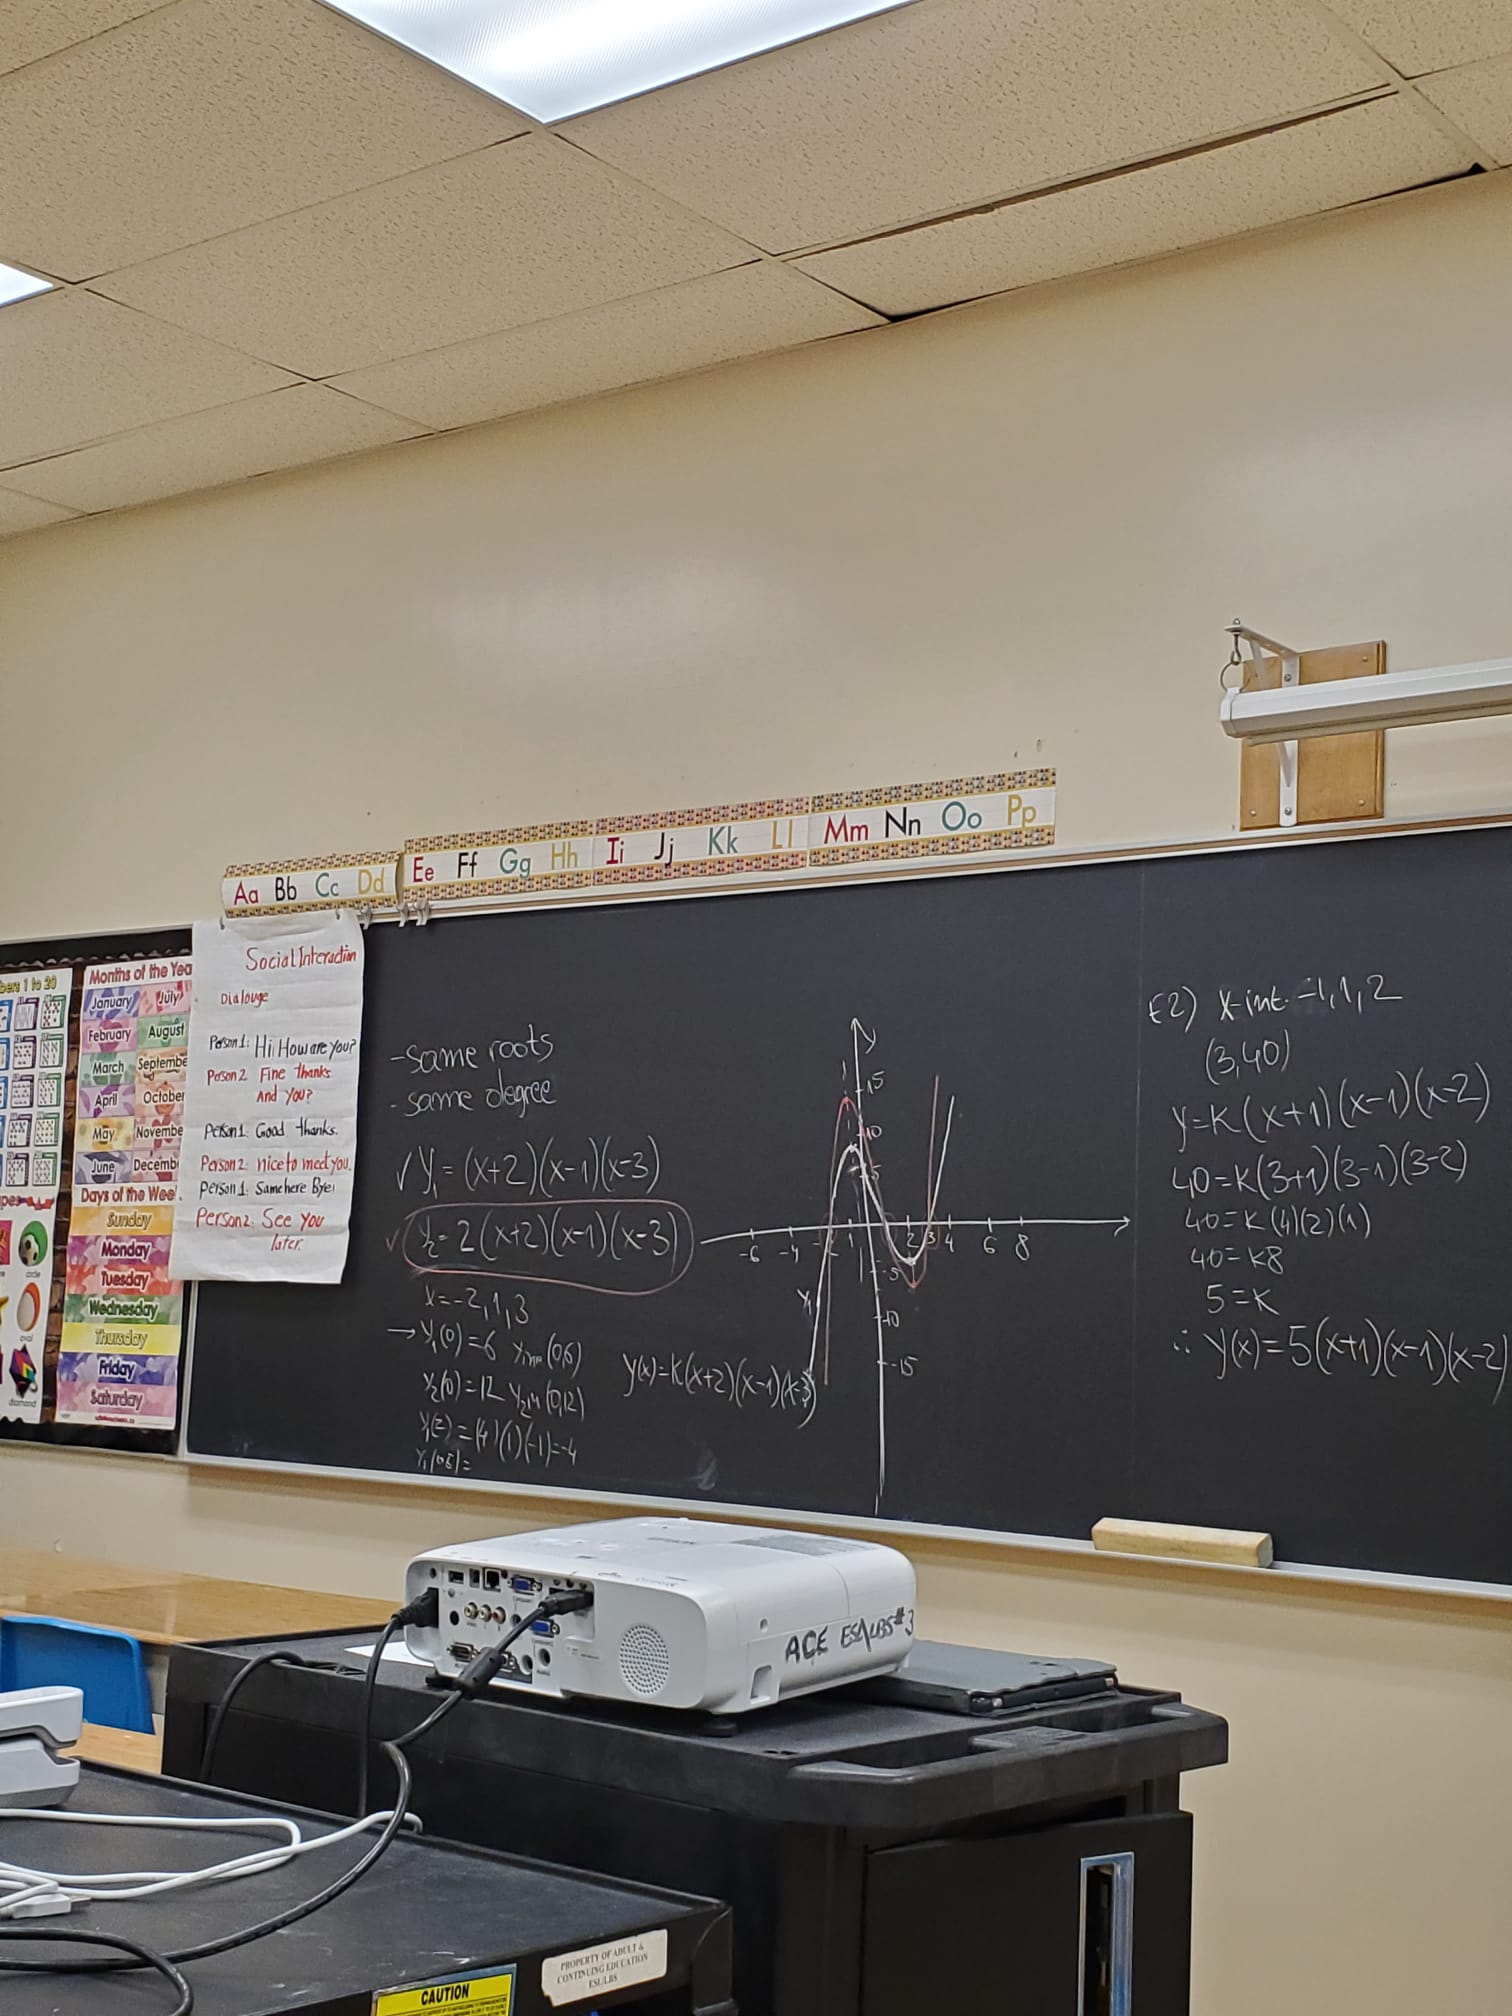 Aa Bb Cc Dd Ee Ff Gg Hh Ii Jj Kk Ll Mm Nn Oo Pp
bers 1 to 20
Months of the Yea
January July
February August
March Septembe
April October
May Novembe
June Decemb
Days of the Wee
Sunday
Monday
Tuesday
Wednesday
Thursday
Friday
Saturday
circle
oval
diamond
Social Interaction
Dialouge
Person 1: Hi How are you?
Person 2 Fine thanks
And you?
Person 1: Good thanks.
Person 2: nice to meet you.
Person 1: Same here Bye!
Person 2: See you
later.
- same roots
- same degree
✓ y₁ = (x+2)(x-1)(x-3)
✓ y₂ = 2(x+2)(x-1)(x-3)
x = -2, 1, 3
→ y₁(0) = 6 yint (0,6)
y₂(0) = 12 y₂int (0,12)
y₁(2) = (4)(1)(-1) = -4
y(x) = k(x+2)(x-1)(x-3)
y
15
10
5
-6 -4 -2 1 2 3 4 6 8
-5
-10
-15
y₁
E2) x-int. -1, 1, 2
(3,40)
y = k(x+1)(x-1)(x-2)
40 = k(3+1)(3-1)(3-2)
40 = k(4)(2)(1)
40 = k8
5 = k
∴ y(x) = 5(x+1)(x-1)(x-2)
ACE ESL/LBS #3
PROPERTY OF ADULT &
CONTINUING EDUCATION
ESL/LBS
CAUTION